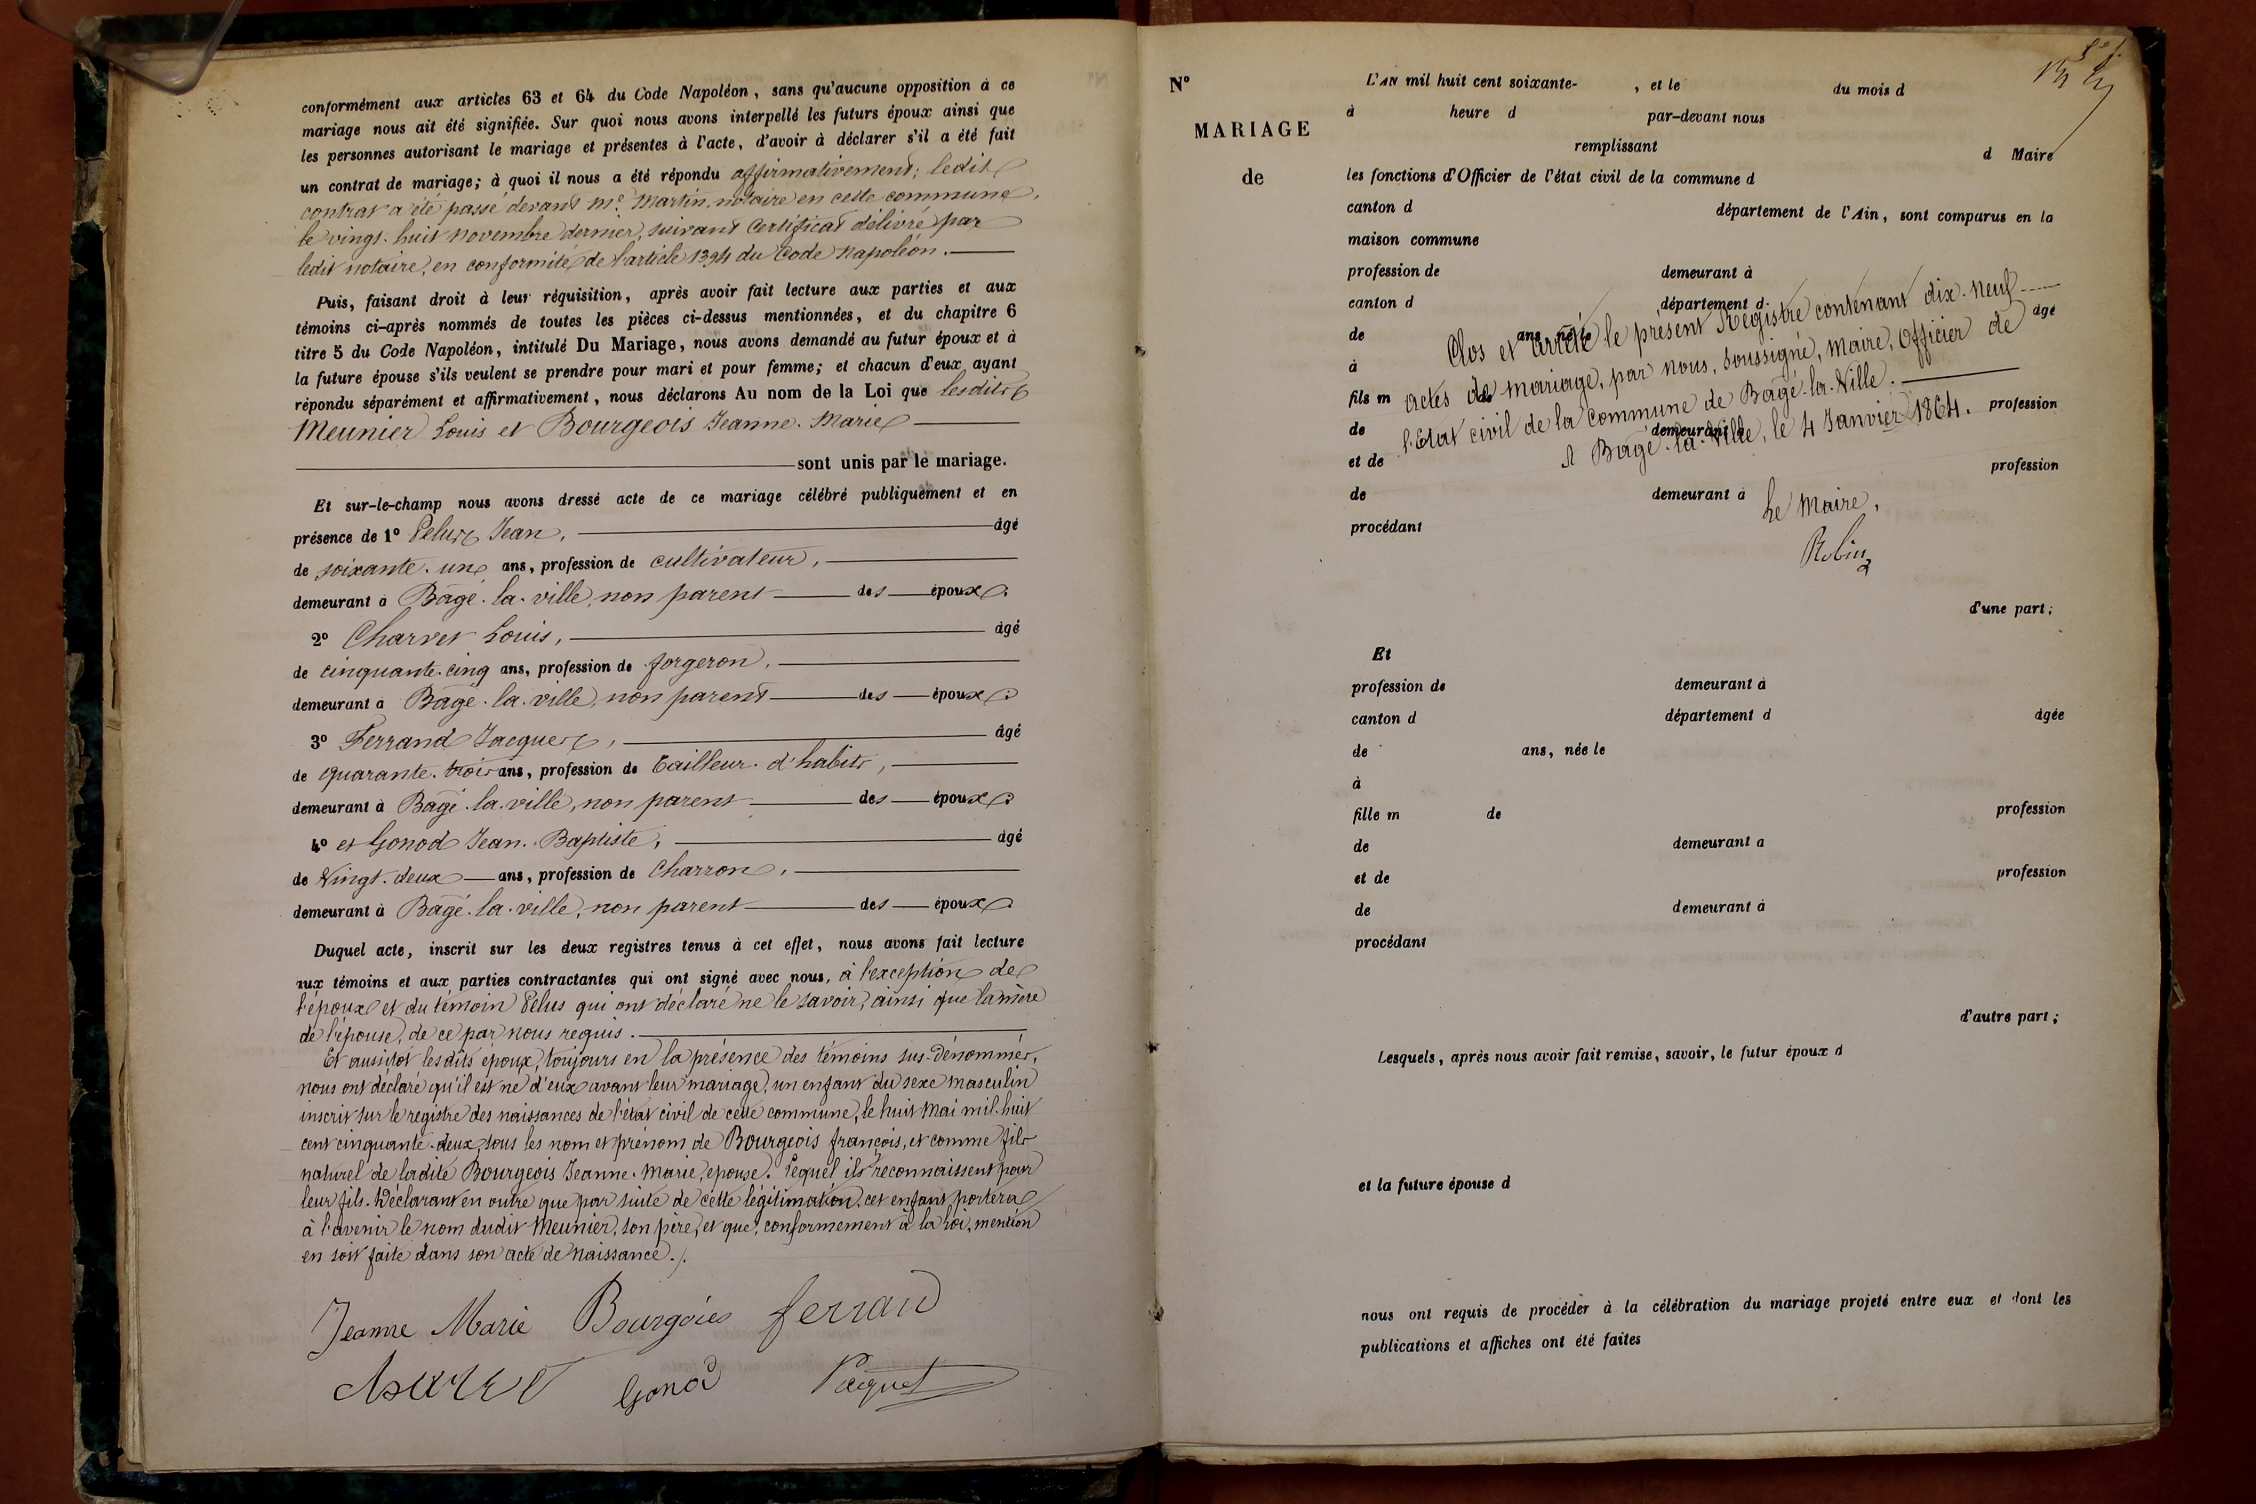 conformément aux articles 63 et 64 du Code Napoléon, sans qu'aucune opposition à ce
mariage nous ait été signifiée. Sur quoi nous avons interpellé les futurs époux ainsi que
les personnes autorisant le mariage et présentes à l'acte, d'avoir à déclarer s'il a été fait
un contrat de mariage; à quoi il nous a été répondu affirmativement; ledit
contrat a été passé devant Me Martin, notaire en cette commune,
le vingt-huit novembre dernier, suivant Certificat délivré par
ledit notaire, en conformité de l'article 1394 du Code Napoléon.
Puis, faisant droit à leur réquisition, après avoir fait lecture aux parties et aux
témoins ci-après nommés de toutes les pièces ci-dessus mentionnées, et du chapitre 6
titre 5 du Code Napoléon, intitulé Du Mariage, nous avons demandé au futur époux et à
la future épouse s'ils veulent se prendre pour mari et pour femme; et chacun d'eux ayant
répondu séparément et affirmativement, nous déclarons Au nom de la Loi que lesdits
Meunier Louis et Bourgeois Jeanne-Marie
sont unis par le mariage.
Et sur-le-champ nous avons dressé acte de ce mariage célébré publiquement et en
présence de 1º Pelus Jean, âgé
de soixante-un ans, profession de cultivateur,
demeurant à Bâgé-la-ville, non parent des époux
2º Charvet Louis, âgé
de cinquante-cinq ans, profession de forgeron,
demeurant à Bâgé-la-ville, non parent des époux
3º Ferrand Jacques, âgé
de quarante-trois ans, profession de tailleur d'habits,
demeurant à Bâgé-la-ville, non parent des époux
4º et Gonod Jean-Baptiste, âgé
de Vingt-deux ans, profession de Charron,
demeurant à Bâgé-la-ville, non parent des époux
Duquel acte, inscrit sur les deux registres tenus à cet effet, nous avons fait lecture
aux témoins et aux parties contractantes qui ont signé avec nous, à l'exception de
l'époux et du témoin Pelus qui ont déclaré ne le savoir, ainsi que la mère
de l'épouse, de ce par nous requis.
Et aussitôt lesdits époux, toujours en la présence des témoins sus-dénommés,
nous ont déclaré qu'il est né d'eux avant leur mariage, un enfant du sexe masculin
inscrit sur le registre des naissances de l'état civil de cette commune, le huit Mai mil-huit
cent cinquante-deux, sous les nom et prénom de Bourgeois françois, et comme fils
naturel de ladite Bourgeois Jeanne-Marie, épouse. Lequel ils reconnaissent pour
leur fils. Déclarant en outre que par suite de cette légitimation, cet enfant portera
à l'avenir le nom dudit Meunier, son père, et que, conformément à la Loi, mention
en soit faite dans son acte de Naissance./.
Jeanne Marie Bourgóies ferrand
Charvet Gonod Pacquet
Nº
MARIAGE
de
L'AN mil huit cent soixante- , et le du mois d
à heure d par-devant nous
remplissant d Maire
les fonctions d'Officier de l'état civil de la commune d
canton d département de l'Ain, sont comparus en la
maison commune
profession de demeurant à
canton d département d
de ans, né le âgé
à
fils m de profession
de demeurant à
et de profession
de demeurant à
procédant
Clos et arrêté le présent Registre contenant dix-neuf
actes de mariage, par nous, soussigné, maire, Officier de
l'Etat civil de la Commune de Bâgé-la-Ville.
A Bâgé-la-Ville, le 4 Janvier 1864.
Le Maire,
Robin
d'une part;
Et
profession de demeurant à
canton d département d âgée
de ans, née le
à
fille m de profession
de demeurant à
et de profession
de demeurant à
procédant
d'autre part;
Lesquels, après nous avoir fait remise, savoir, le futur époux d
et la future épouse d
nous ont requis de procéder à la célébration du mariage projeté entre eux et dont les
publications et affiches ont été faites